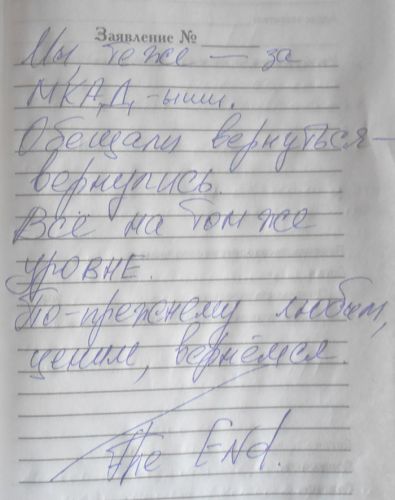 Заявление №
Мы, те же — за
МКАД-ыши.
Обещали вернуться —
вернулись.
Всё на том же
уровне.
По-прежнему любим,
ценим, вернёмся.
The End.